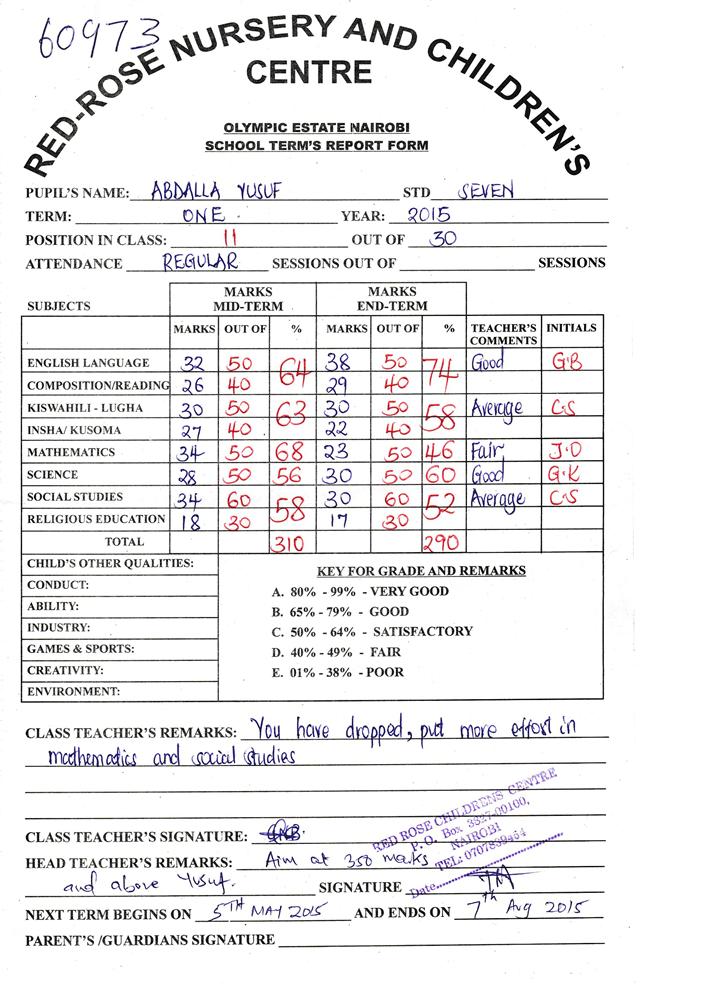 60973
RED-ROSE NURSERY AND CHILDREN'S
CENTRE
OLYMPIC ESTATE NAIROBI
SCHOOL TERM'S REPORT FORM
PUPIL'S NAME: ABDALLA YUSUF STD SEVEN
TERM: ONE . YEAR: 2015
POSITION IN CLASS: 11 OUT OF 30
ATTENDANCE REGULAR SESSIONS OUT OF SESSIONS
SUBJECTS MARKS MID-TERM MARKS END-TERM
MARKS OUT OF % MARKS OUT OF % TEACHER'S COMMENTS INITIALS
ENGLISH LANGUAGE 32 50 64 38 50 74 Good G.B
COMPOSITION/READING 26 40 29 40
KISWAHILI - LUGHA 30 50 63 30 50 58 Average C.S
INSHA/ KUSOMA 27 40 22 40
MATHEMATICS 34 50 68 23 50 46 Fair J.O
SCIENCE 28 50 56 30 50 60 Good G.K
SOCIAL STUDIES 34 60 58 30 60 52 Average C.S
RELIGIOUS EDUCATION 18 30 17 30
TOTAL 310 290
CHILD'S OTHER QUALITIES:
CONDUCT:
ABILITY:
INDUSTRY:
GAMES & SPORTS:
CREATIVITY:
ENVIRONMENT:
KEY FOR GRADE AND REMARKS
A. 80% - 99% - VERY GOOD
B. 65% - 79% - GOOD
C. 50% - 64% - SATISFACTORY
D. 40% - 49% - FAIR
E. 01% - 38% - POOR
CLASS TEACHER'S REMARKS: You have dropped, put more effort in
mathematics and social studies
CLASS TEACHER'S SIGNATURE:
RED ROSE CHILDRENS CENTRE
P. O. Box 3327-00100,
NAIROBI
TEL: 0707839464
Date
HEAD TEACHER'S REMARKS: Aim at 350 marks
and above Yusuf. SIGNATURE
NEXT TERM BEGINS ON 5TH MAY 2015 AND ENDS ON 7th Aug 2015
PARENT'S /GUARDIANS SIGNATURE